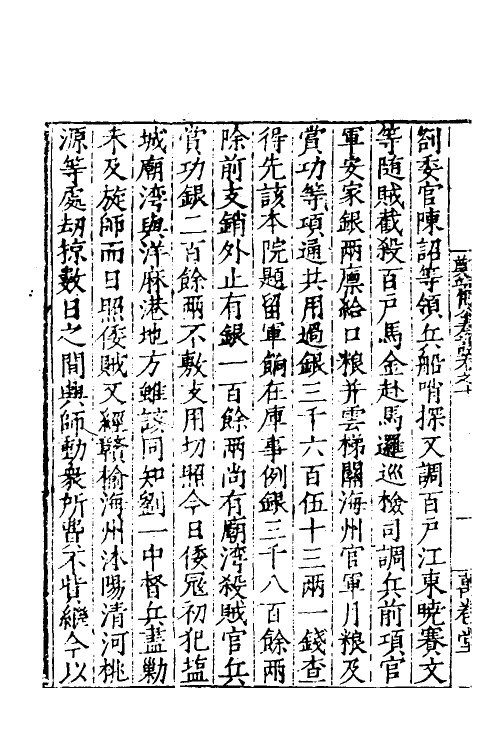 劄委官陳詔等領兵船哨探又調百戶江東曉賽文
等随賊截殺百戶馬金赴馬邏巡檢司調兵前項官
軍安家銀兩廪給口粮并雲梯關海州官軍月粮及
賞功等項通共用過銀三千六百伍十三兩一錢查
得先該本院題留軍餉在庫事例銀三千八百餘兩
除前支銷外止有銀一百餘兩尚有廟湾殺賊官兵
賞功銀二百餘兩不敷支用切照今日倭寇初犯塩
城廟湾與洋麻港地方雖該同知劉一中督兵盡勦
未及旋師而日照倭賊又經贛榆海州沭陽清河桃
源等處刼掠數日之間興師動衆所費不貲縂今以
萬卷堂